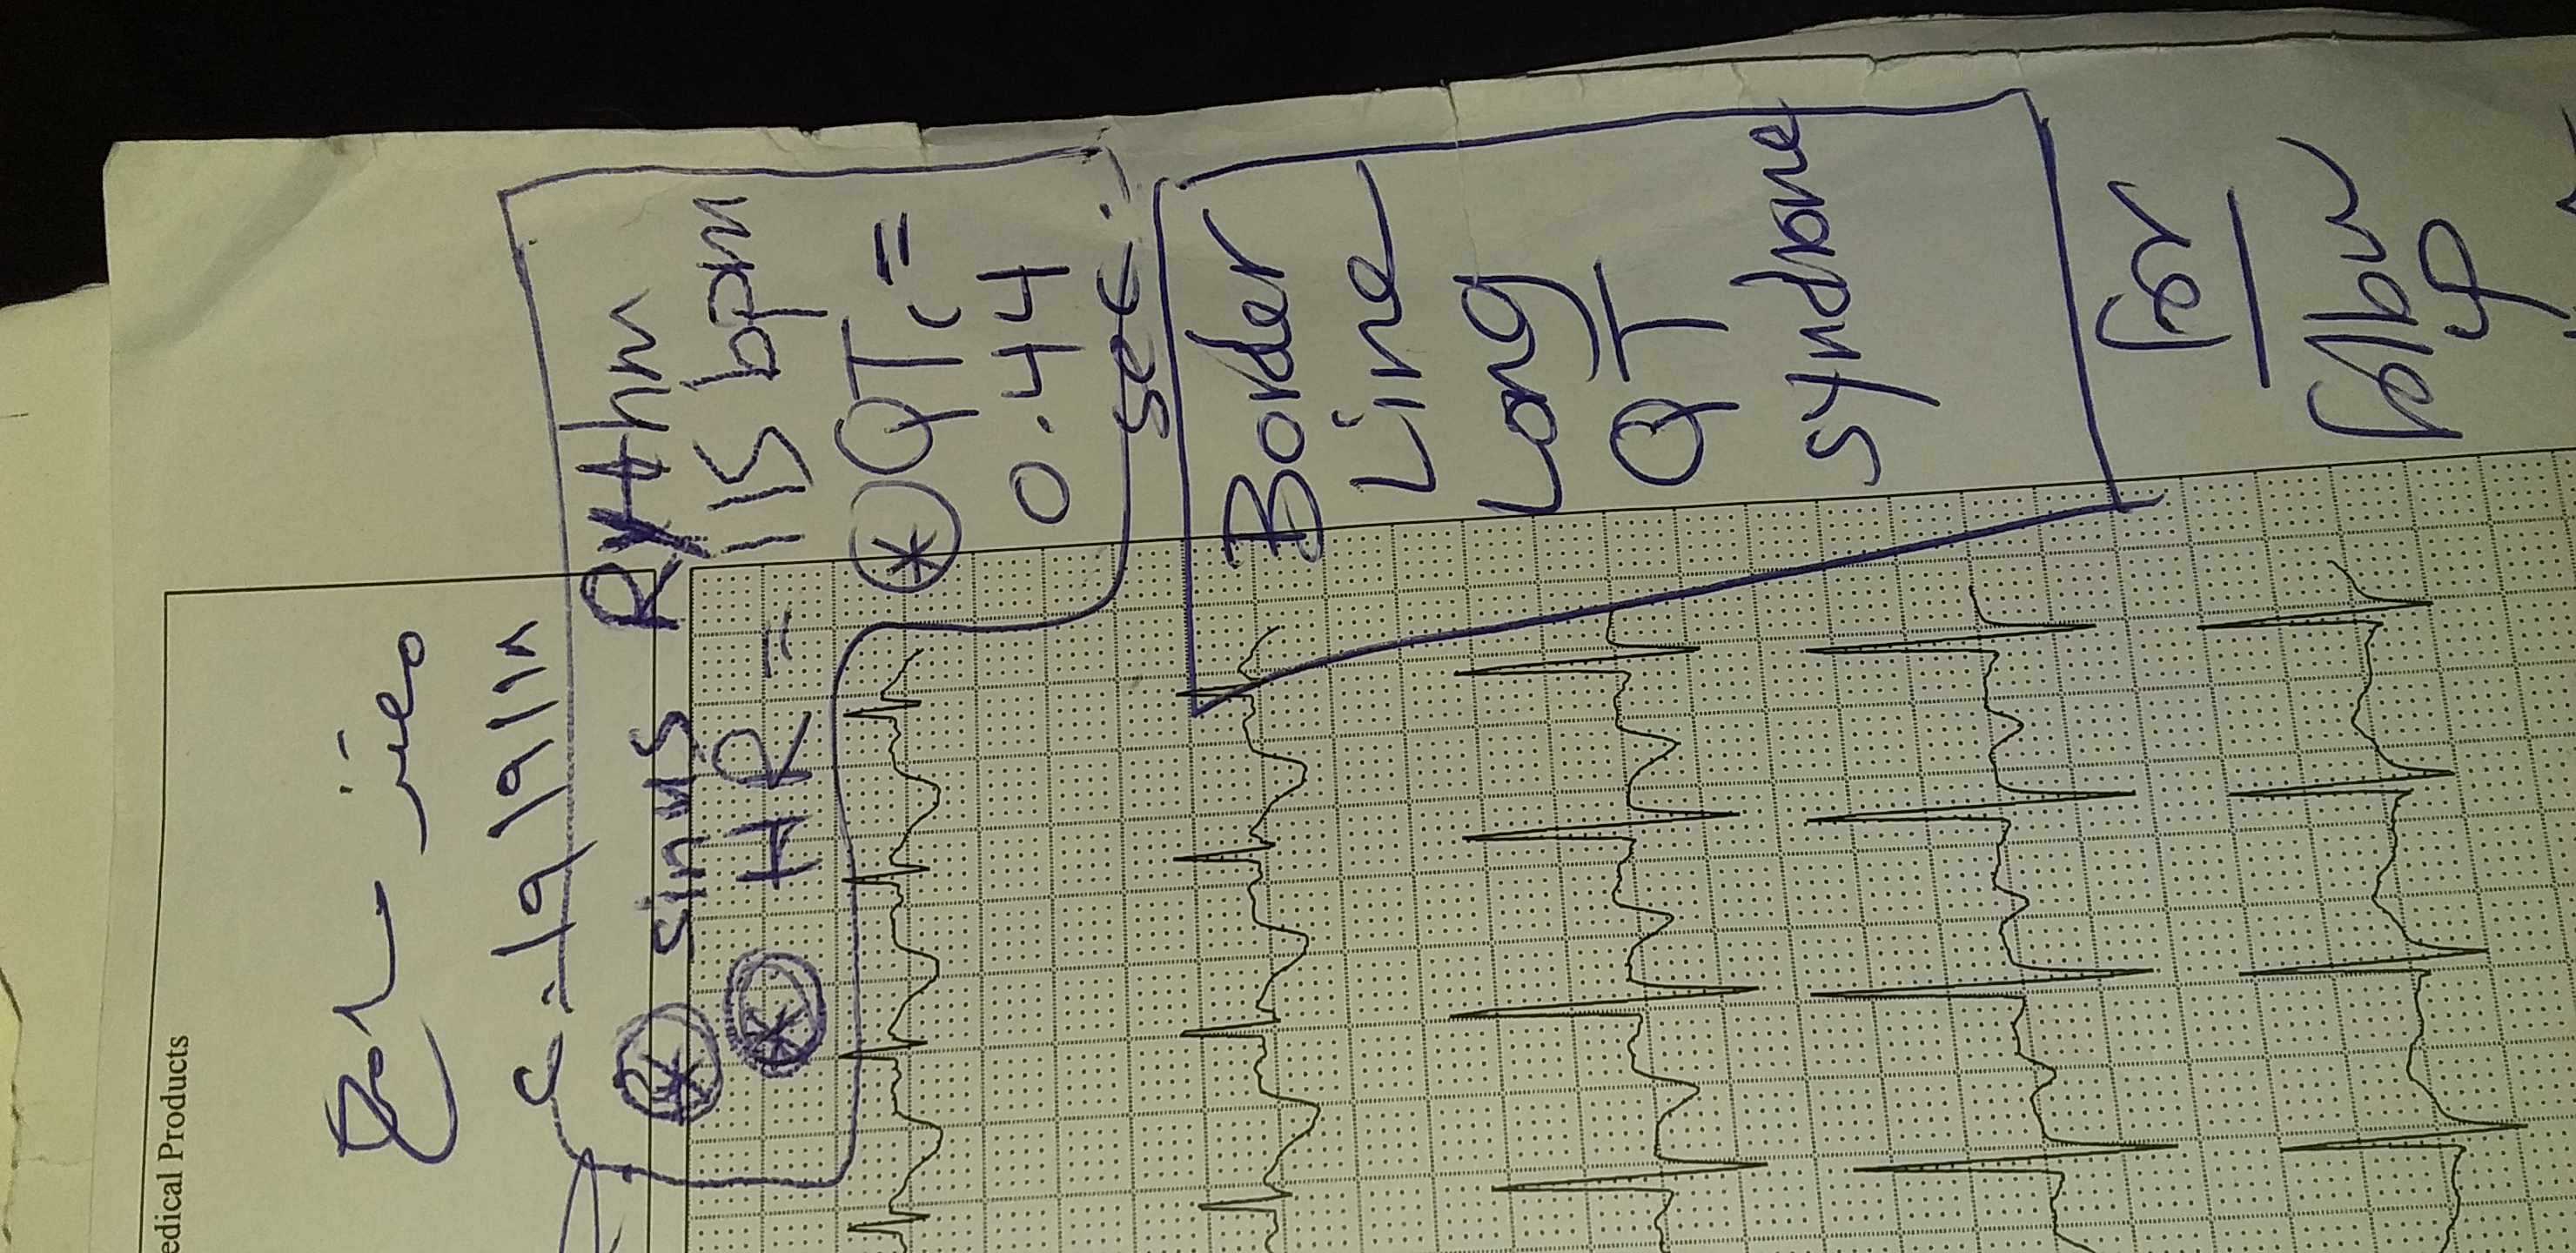 edical Products
Sinus Rythm
HR = 115 bpm
QTc =
0.44
sec.
Border
Line
Long
QT
syndrome
for
follow
up